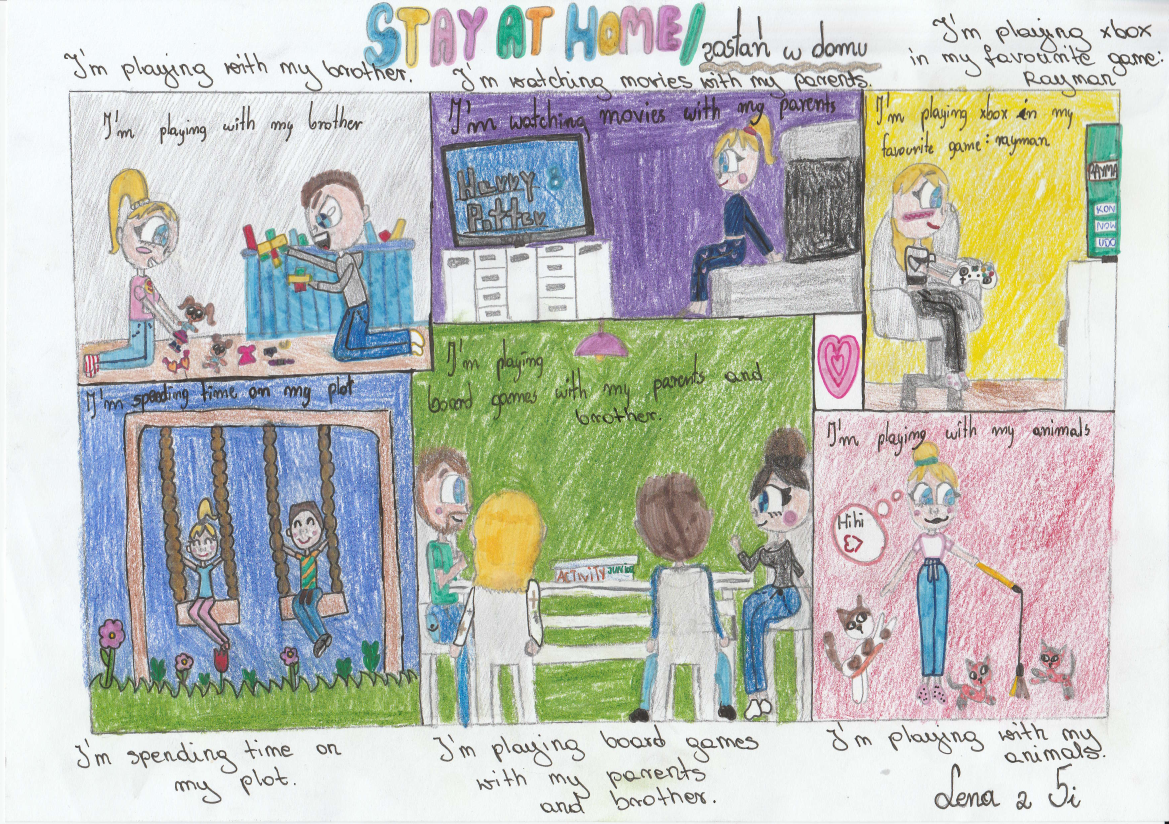 STAY AT HOME/
zostań w domu
I'm playing with my brother.
I'm watching movies with my parents.
I'm playing xbox
in my favourite game:
Rayman
I'm playing with my brother
I'm watching movies with my parents
Harry
Potter
I'm playing xbox in my
favourite game: rayman
RAYMA
KON
NOW
UDO
I'm spending time on my plot
I'm playing
board games with my parents and
brother.
ACTIVITY JUNIOR
I'm playing with my animals
Hihi
I'm spending time on
my plot.
I'm playing board games
with my parents
and brother.
I'm playing with my
animals.
Lena z 5i